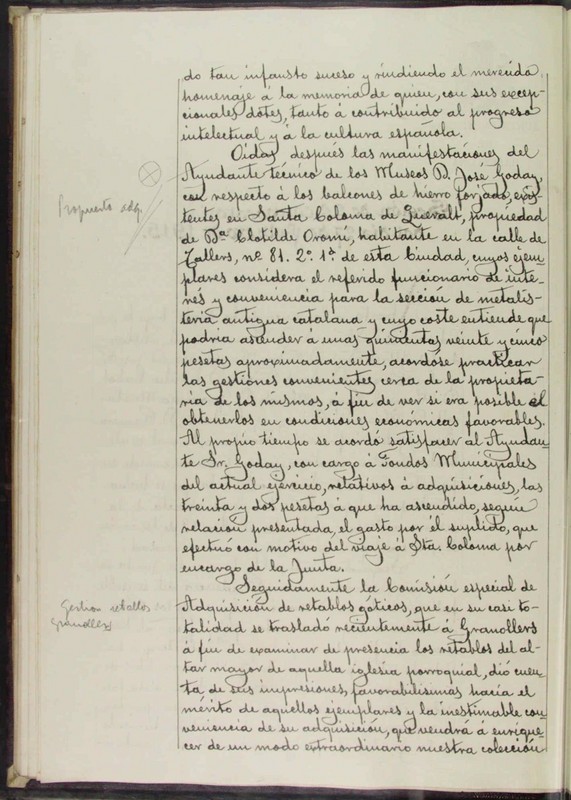 do tan infausto suceso y rindiendo el merecido
homenaje á la memoria de quien, con sus excep-
cionales dotes, tanto á contribuido al progreso
intelectual y á la cultura española.
Oidas después las manifestaciones del
Ayudante técnico de los Museos D. José Goday,
con respecto á los balcones de hierro forjado, exis-
tentes en Santa Coloma de Queralt, propiedad
de Dª Clotilde Oromí, habitante en la calle de
Tallers, nº 81. 2º. 1ª de esta Ciudad, cuyos ejem
plares considera el referido funcionario de inte-
rés y conveniencia para la sección de metalis-
teria antigua catalana y cuyo coste entiende que
podria ascender á unas quinientas veinte y cinco
pesetas aproximadamente, acordóse practicar
las gestiones convenientes cerca de la propieta-
ria de los mismos, á fin de ver si era posible el
obtenerlos en condiciones económicas favorables.
Al propio tiempo se acordó satisfacer al Ayudan-
te Sr. Goday, con cargo á Fondos Municipales
del actual ejercicio, relativos á adquisiciones, las
treinta y dos pesetas á que ha ascendido, según
relación presentada, el gasto por el suplido, que
efectuó con motivo del viaje á Sta. Coloma por
encargo de la Junta.
Seguidamente la Comisión especial de
Adquisición de retablos goticos, que en su casi to-
talidad se trasladó recientemente á Granollers
á fin de examinar de presencia los retablos del al-
tar mayor de aquella iglesia parroquial, dió cuen-
ta de sus impresiones, favorabilisimas hacia el
mérito de aquellos ejemplares y la inestimable con
veniencia de su adquisición, que vendrá á enrique-
cer de un modo extraordinario nuestra colección
Gestion retablos
Granollers